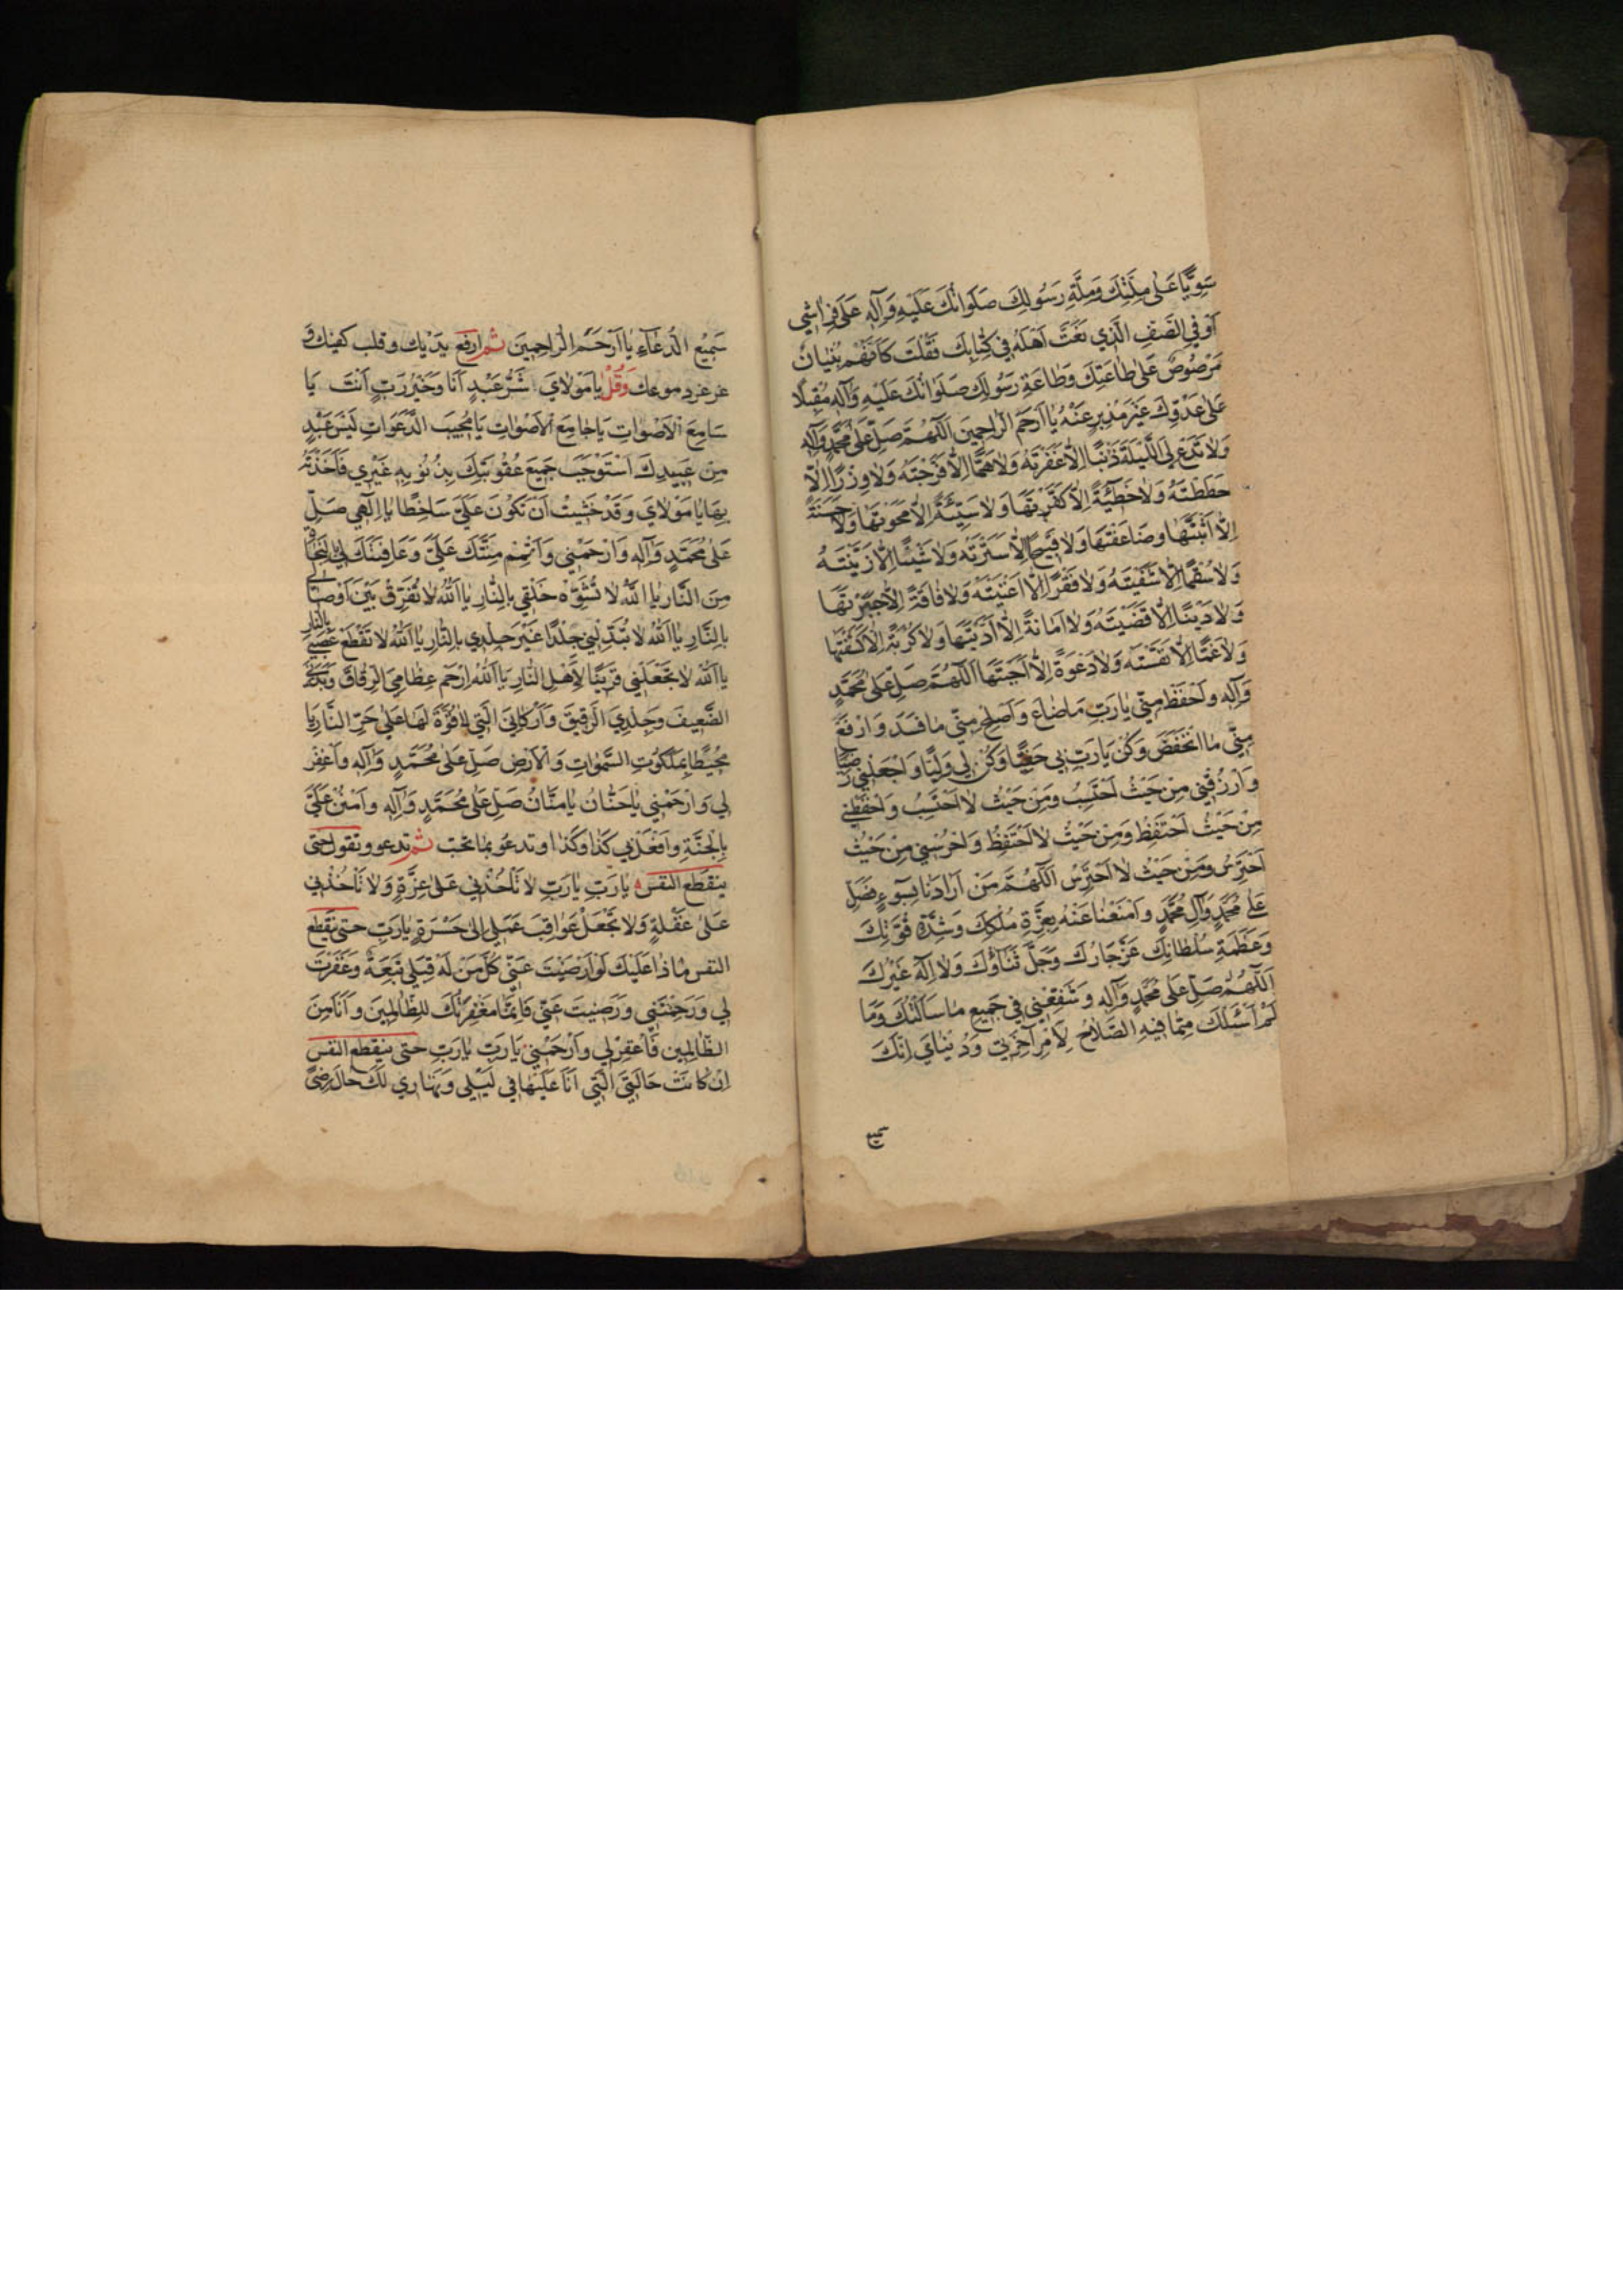 سَوِيًّا عَلىٰ مِلَّتِكَ وَمِلَّةِ رَسُولِكَ صَلَوَاتُكَ عَلَيْهِ وَآلِهِ عَلىٰ فِرَاشِي
أَوْ فِي الصَّفِّ الَّذِي نَعَتَّ أَهْلَهُ فِي كِتَابِكَ فَقُلْتَ كَأَنَّهُمْ بُنْيَانٌ
مَرْصُوصٌ عَلىٰ طَاعَتِكَ وَطَاعَةِ رَسُولِكَ صَلَوَاتُكَ عَلَيْهِ وَآلِهِ مُقْبِلًا
عَلىٰ عَدُوِّكَ غَيْرَ مُدْبِرٍ عَنْهُ يَا أَرْحَمَ الرَّاحِمِينَ اَللّٰهُمَّ صَلِّ عَلىٰ مُحَمَّدٍ وَآلِهِ
وَلَا تَدَعْ لِيَ اللَّيْلَةَ ذَنْبًا إِلَّا غَفَرْتَهُ وَلَا هَمًّا إِلَّا فَرَّجْتَهُ وَلَا وِزْرًا إِلَّا
حَطَطْتَهُ وَلَا خَطِيئَةً إِلَّا كَفَّرْتَهَا وَلَا سَيِّئَةً إِلَّا مَحَوْتَهَا وَلَا حَسَنَةً
إِلَّا أَثْبَتَّهَا وَضَاعَفْتَهَا وَلَا قَبِيحًا إِلَّا سَتَرْتَهُ وَلَا شَيْئًا إِلَّا زَيَّنْتَهُ
وَلَا سُقْمًا إِلَّا شَفَيْتَهُ وَلَا فَقْرًا إِلَّا أَغْنَيْتَهُ وَلَا فَاقَةً إِلَّا جَبَرْتَهَا
وَلَا دَيْنًا إِلَّا قَضَيْتَهُ وَلَا أَمَانَةً إِلَّا أَدَّيْتَهَا وَلَا كُرْبَةً إِلَّا كَشَفْتَهَا
وَلَا غَمًّا إِلَّا نَفَّسْتَهُ وَلَا دَعْوَةً إِلَّا أَجَبْتَهَا اَللّٰهُمَّ صَلِّ عَلىٰ مُحَمَّدٍ
وَآلِهِ وَاحْفَظْ مِنِّي يَا رَبِّ مَا ضَاعَ وَأَصْلِحْ مِنِّي مَا فَسَدَ وَارْفَعْ
مِنِّي مَا انْخَفَضَ وَكُنْ يَا رَبِّ بِي حَفِيًّا وَكُنْ لِي وَلِيًّا وَاجْعَلْنِي رَضِيًّا
وَارْزُقْنِي مِنْ حَيْثُ أَحْتَسِبُ وَمِنْ حَيْثُ لَا أَحْتَسِبُ وَاحْفَظْنِي
مِنْ حَيْثُ أَحْتَفِظُ وَمِنْ حَيْثُ لَا أَحْتَفِظُ وَاحْرُسْنِي مِنْ حَيْثُ
أَحْتَرِسُ وَمِنْ حَيْثُ لَا أَحْتَرِسُ اَللّٰهُمَّ مَنْ أَرَادَنَا بِسُوءٍ فَصَلِّ
عَلىٰ مُحَمَّدٍ وَآلِ مُحَمَّدٍ وَامْنَعْنَا عَنْهُ بِعِزَّةِ مُلْكِكَ وَشِدَّةِ قُوَّتِكَ
وَعَظَمَةِ سُلْطَانِكَ عَزَّ جَارُكَ وَجَلَّ ثَنَاؤُكَ وَلَا إِلٰهَ غَيْرُكَ
اَللّٰهُمَّ صَلِّ عَلىٰ مُحَمَّدٍ وَآلِهِ وَشَفِّعْنِي فِي جَمِيعِ مَا سَأَلْتُكَ وَمَا
لَمْ أَسْئَلْكَ مِمَّا فِيهِ الصَّلَاحُ لِأَمْرِ آخِرَتِي وَدُنْيَايَ إِنَّكَ
سميع
سَمِيعُ الدُّعَاءِ يَا أَرْحَمَ الرَّاحِمِينَ ثم ارفع يَدَيْكَ وقلب كفيك وَ
غرغر دموعك وَقُلْ يَا مَوْلَايَ شَرُّ عَبْدٍ أَنَا وَخَيْرُ رَبٍّ أَنْتَ يَا
سَامِعَ الْأَصْوَاتِ يَا جَامِعَ الْأَصْوَاتِ يَا مُجِيبَ الدَّعَوَاتِ لَيْسَ عَبْدٌ
مِنْ عَبِيدِكَ اسْتَوْجَبَ جَمِيعَ عُقُوبَتِكَ بِذُنُوبِهِ غَيْرِي فَأَخَذْتَهُ
بِهَا يَا مَوْلَايَ وَقَدْ خَشِيتُ أَنْ تَكُونَ عَلَيَّ سَاخِطًا يَا إِلٰهِي صَلِّ
عَلىٰ مُحَمَّدٍ وَآلِهِ وَارْحَمْنِي وَأَتْمِمْ مِنَّتَكَ عَلَيَّ وَعَافِيَتَكَ لِي
مِنَ النَّارِ يَا اَللّٰهُ لَا تُشَوِّهْ خَلْقِي بِالنَّارِ يَا اَللّٰهُ لَا تُفَرِّقْ بَيْنَ أَوْصَالِي
بِالنَّارِ يَا اَللّٰهُ لَا تُبَدِّلْنِي جِلْدًا غَيْرَ جِلْدِي بِالنَّارِ يَا اَللّٰهُ لَا تَقْطَعْ عَصَبِي بِالنَّارِ
يَا اَللّٰهُ لَا تَجْعَلْنِي قَرِينًا لِأَهْلِ النَّارِ يَا اَللّٰهُ ارْحَمْ عِظَامِيَ الرِّقَاقَ وَبَدَنِيَ
الضَّعِيفَ وَجِلْدِيَ الرَّقِيقَ وَأَرْكَانِيَ الَّتِي لَا قُوَّةَ لَهَا عَلىٰ حَرِّ النَّارِ يَا
مُحِيطًا بِمَلَكُوتِ السَّمٰوَاتِ وَالْأَرْضِ صَلِّ عَلىٰ مُحَمَّدٍ وَآلِهِ وَاغْفِرْ
لِي وَارْحَمْنِي يَا حَنَّانُ يَا مَنَّانُ صَلِّ عَلىٰ مُحَمَّدٍ وَآلِهِ وَامْنُنْ عَلَيَّ
بِالْجَنَّةِ وَافْعَلْ بِي كَذَا وَكَذَا وتدعو بما تحب ثم تدعو وتقول حتى
ينقطع النفس يَا رَبِّ يَا رَبِّ لَا تَأْخُذْنِي عَلىٰ غِرَّةٍ وَلَا تَأْخُذْنِي
عَلىٰ غَفْلَةٍ وَلَا تَجْعَلْ عَوَاقِبَ عَمَلِي إِلىٰ حَسْرَةٍ يَا رَبِّ حتى ينقطع
النفس مَاذَا عَلَيْكَ لَوْ أَرْضَيْتَ عَنِّي كُلَّ مَنْ لَهُ قِبَلِي تَبِعَةٌ وَغَفَرْتَ
لِي وَرَحِمْتَنِي وَرَضِيتَ عَنِّي فَإِنَّمَا مَغْفِرَتُكَ لِلظَّالِمِينَ وَأَنَا مِنَ
الظَّالِمِينَ فَاغْفِرْ لِي وَارْحَمْنِي يَا رَبِّ يَا رَبِّ حتى ينقطع النفس
إِنْ كَانَتْ حَالَتِيَ الَّتِي أَنَا عَلَيْهَا فِي لَيْلِي وَنَهَارِي لَكَ حَالَ رِضًى